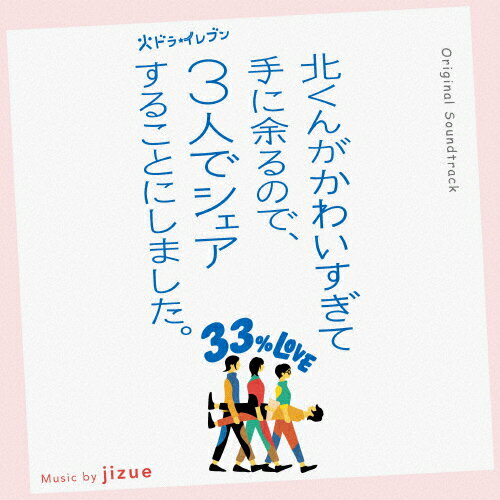 火ドラ★イレブン
北くんがかわいすぎて
手に余るので、
3人でシェア
することにしました。
Original Soundtrack
33%LOVE
Music by jizue